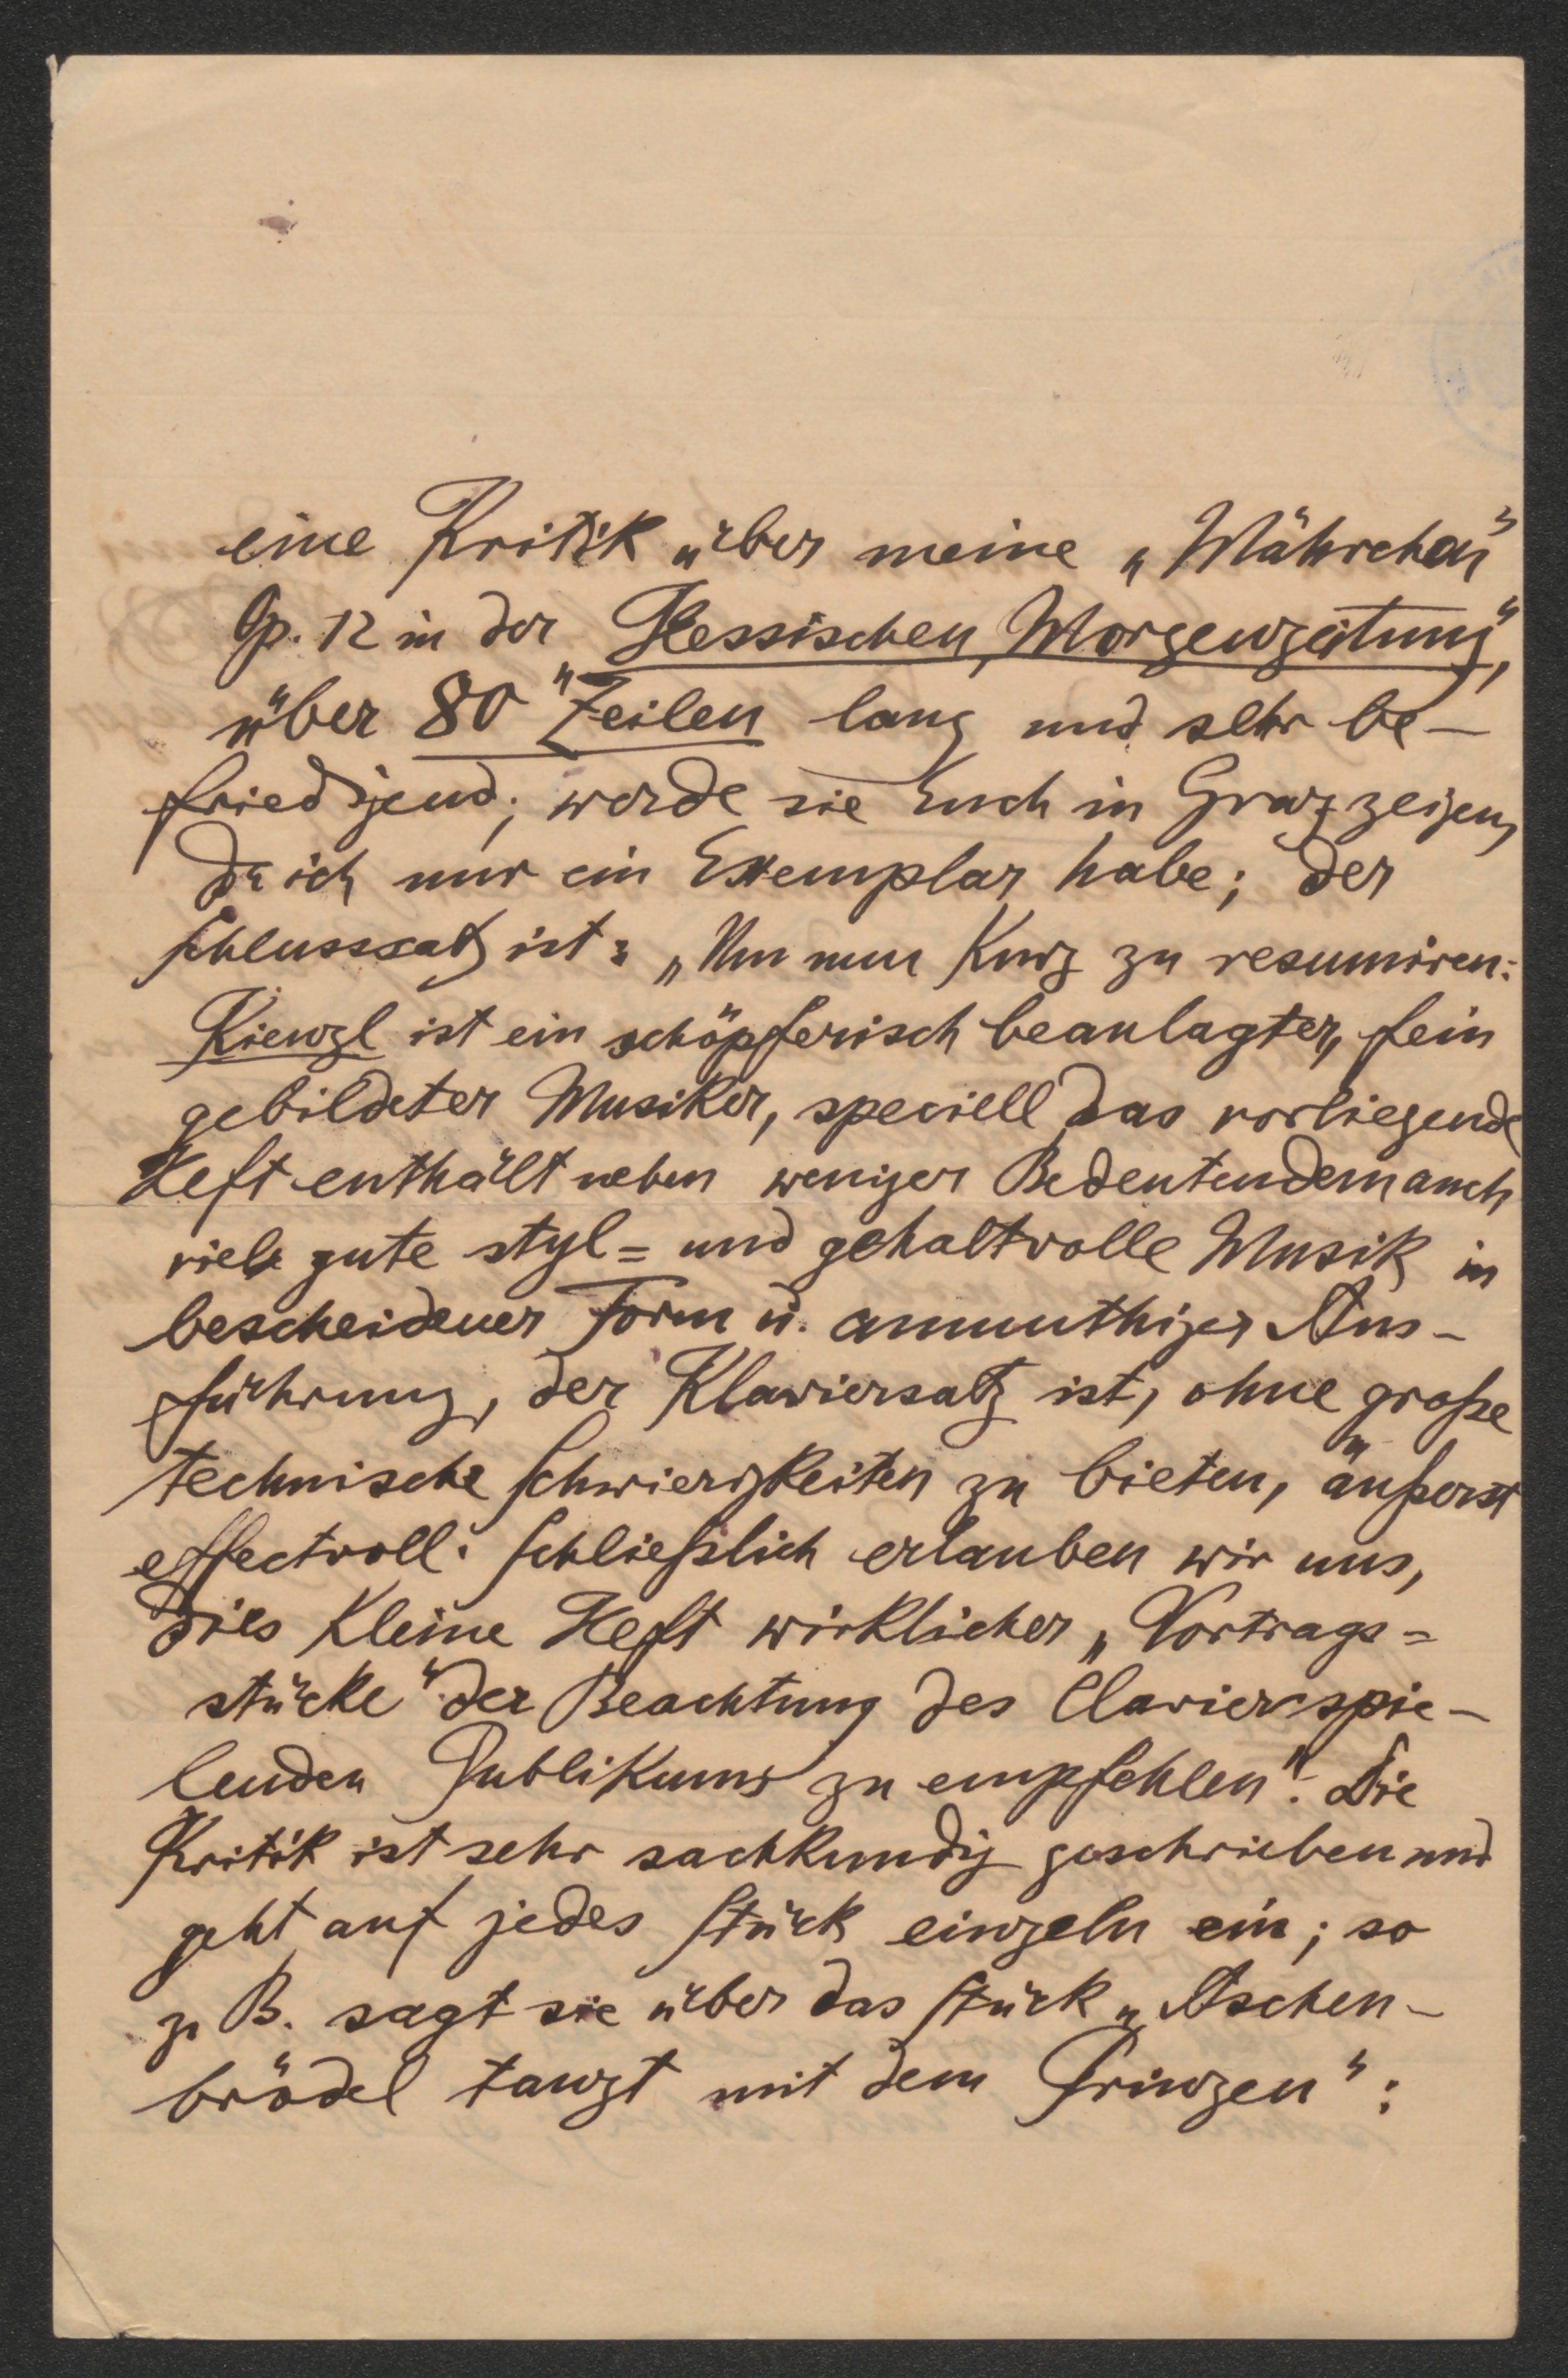 eine Kritik über meine „Währchen"
Op. 12 in der „Hessischen Morgenzeitung",
über 80 Zeilen lang und sehr be-
friedigend; werde sie Euch in Graz zeigen,
da ich nur ein Exemplar habe; der
Schlusssatz ist: „Um nun kurz zu resumiren:
Kienzl ist ein schöpferisch beanlagter, fein
gebildeter Musiker, speciell das vorliegende
Heft enthält neben weniger Bedeutendem auch
viele gute styl= und gehaltvolle Musik in
bescheidener Form u. anmuthiger Aus-
führung, der Klaviersatz ist, ohne große
technische Schwierigkeiten zu bieten, äußerst
effectvoll. Schließlich erlauben wir uns,
dies kleine Heft wirklicher „Vortrags=
stücke" der Beachtung des Clavierspie-
lenden Publikums zu empfehlen". Die
Kritik ist sehr sachkundig geschrieben und
geht auf jedes Stück einzeln ein; so
z. B. sagt sie über das Stück „Aschen-
brödel tanzt mit dem Prinzen":